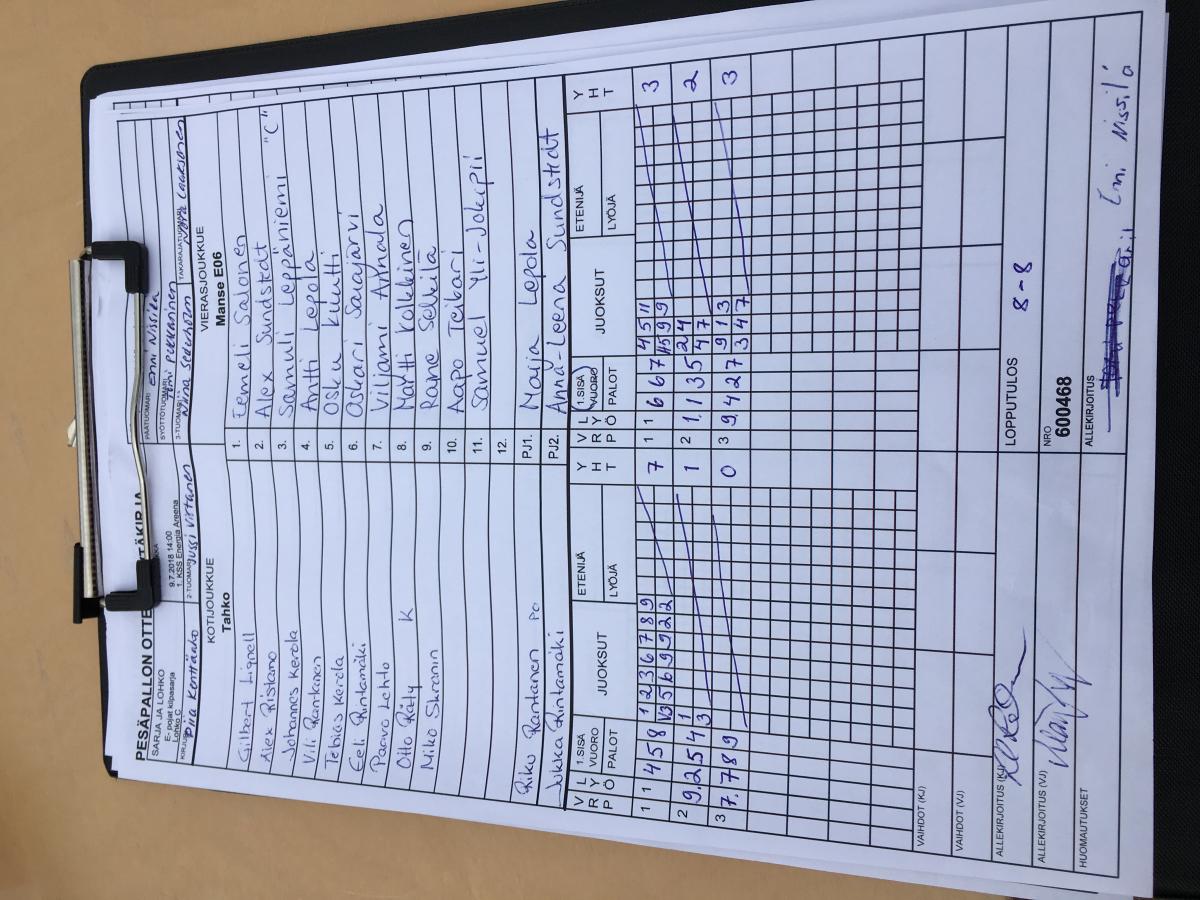 PESÄPALLON OTTE TÄKIRJA
SARJA JA LOHKO
E- pojat kilpasarja
Lohko C
9.7.2018 14:00
1. KSS Energia Areena
PÄÄTUOMARI Enni Nissilä
SYÖTTÖTUOMARI Pekkarinen
KIRJURI Piia Kenttänko
2-TUOMARI Jussi Virtanen
3-TUOMARI Niina Sederholm
TAKARAJATUOMARI Laaksonen
KOTIJOUKKUE
Tahko
VIERASJOUKKUE
Manse E06
Gilbert Lignell
Alex Ristamo
Johannes Kerola
Vili Rantanen
Tobias Kerola
Eeli Rintamäki
Paavo Lehto
Otto Räty K
Miko Skramin
Riku Rantanen PJ
Jukka Rintamäki
1. Eemeli Salonen
2. Alex Sundstedt
3. Samuli Leppäniemi "C"
4. Antti Lepola
5. Osku Kuutti
6. Oskari Sarajärvi
7. Viljami Annala
8. Martti Kolkkinen
9. Rane Selkila
10. Aapo Teikari
11. Samuel Yli-Jokipii
12.
PJ1. Maija Lepola
PJ2. Anna-Leena Sundstedt
V R P L Y Ö 1.SISÄ VUORO PALOT JUOKSUT ETENIJÄ LYÖJÄ Y H T
V R P L Y Ö 1.SISÄ VUORO PALOT JUOKSUT ETENIJÄ LYÖJÄ Y H T
1 1 4 5 8 1 2 3 6 7 8 9 7
1 1 6 6 7 4 5 11 3
2 9. 2 5 4 1 1
3
2 1. 1 3 5 2 4 2
4 7
3 7. 7 8 9 0
3 9. 4 2 7 9 1 3 3
3 4 7
VAIHDOT (KJ)
VAIHDOT (VJ)
ALLEKIRJOITUS (KJ)
LOPPUTULOS
8-8
ALLEKIRJOITUS (VJ)
NRO
600468
HUOMAUTUKSET
ALLEKIRJOITUS
Enni Nissilä